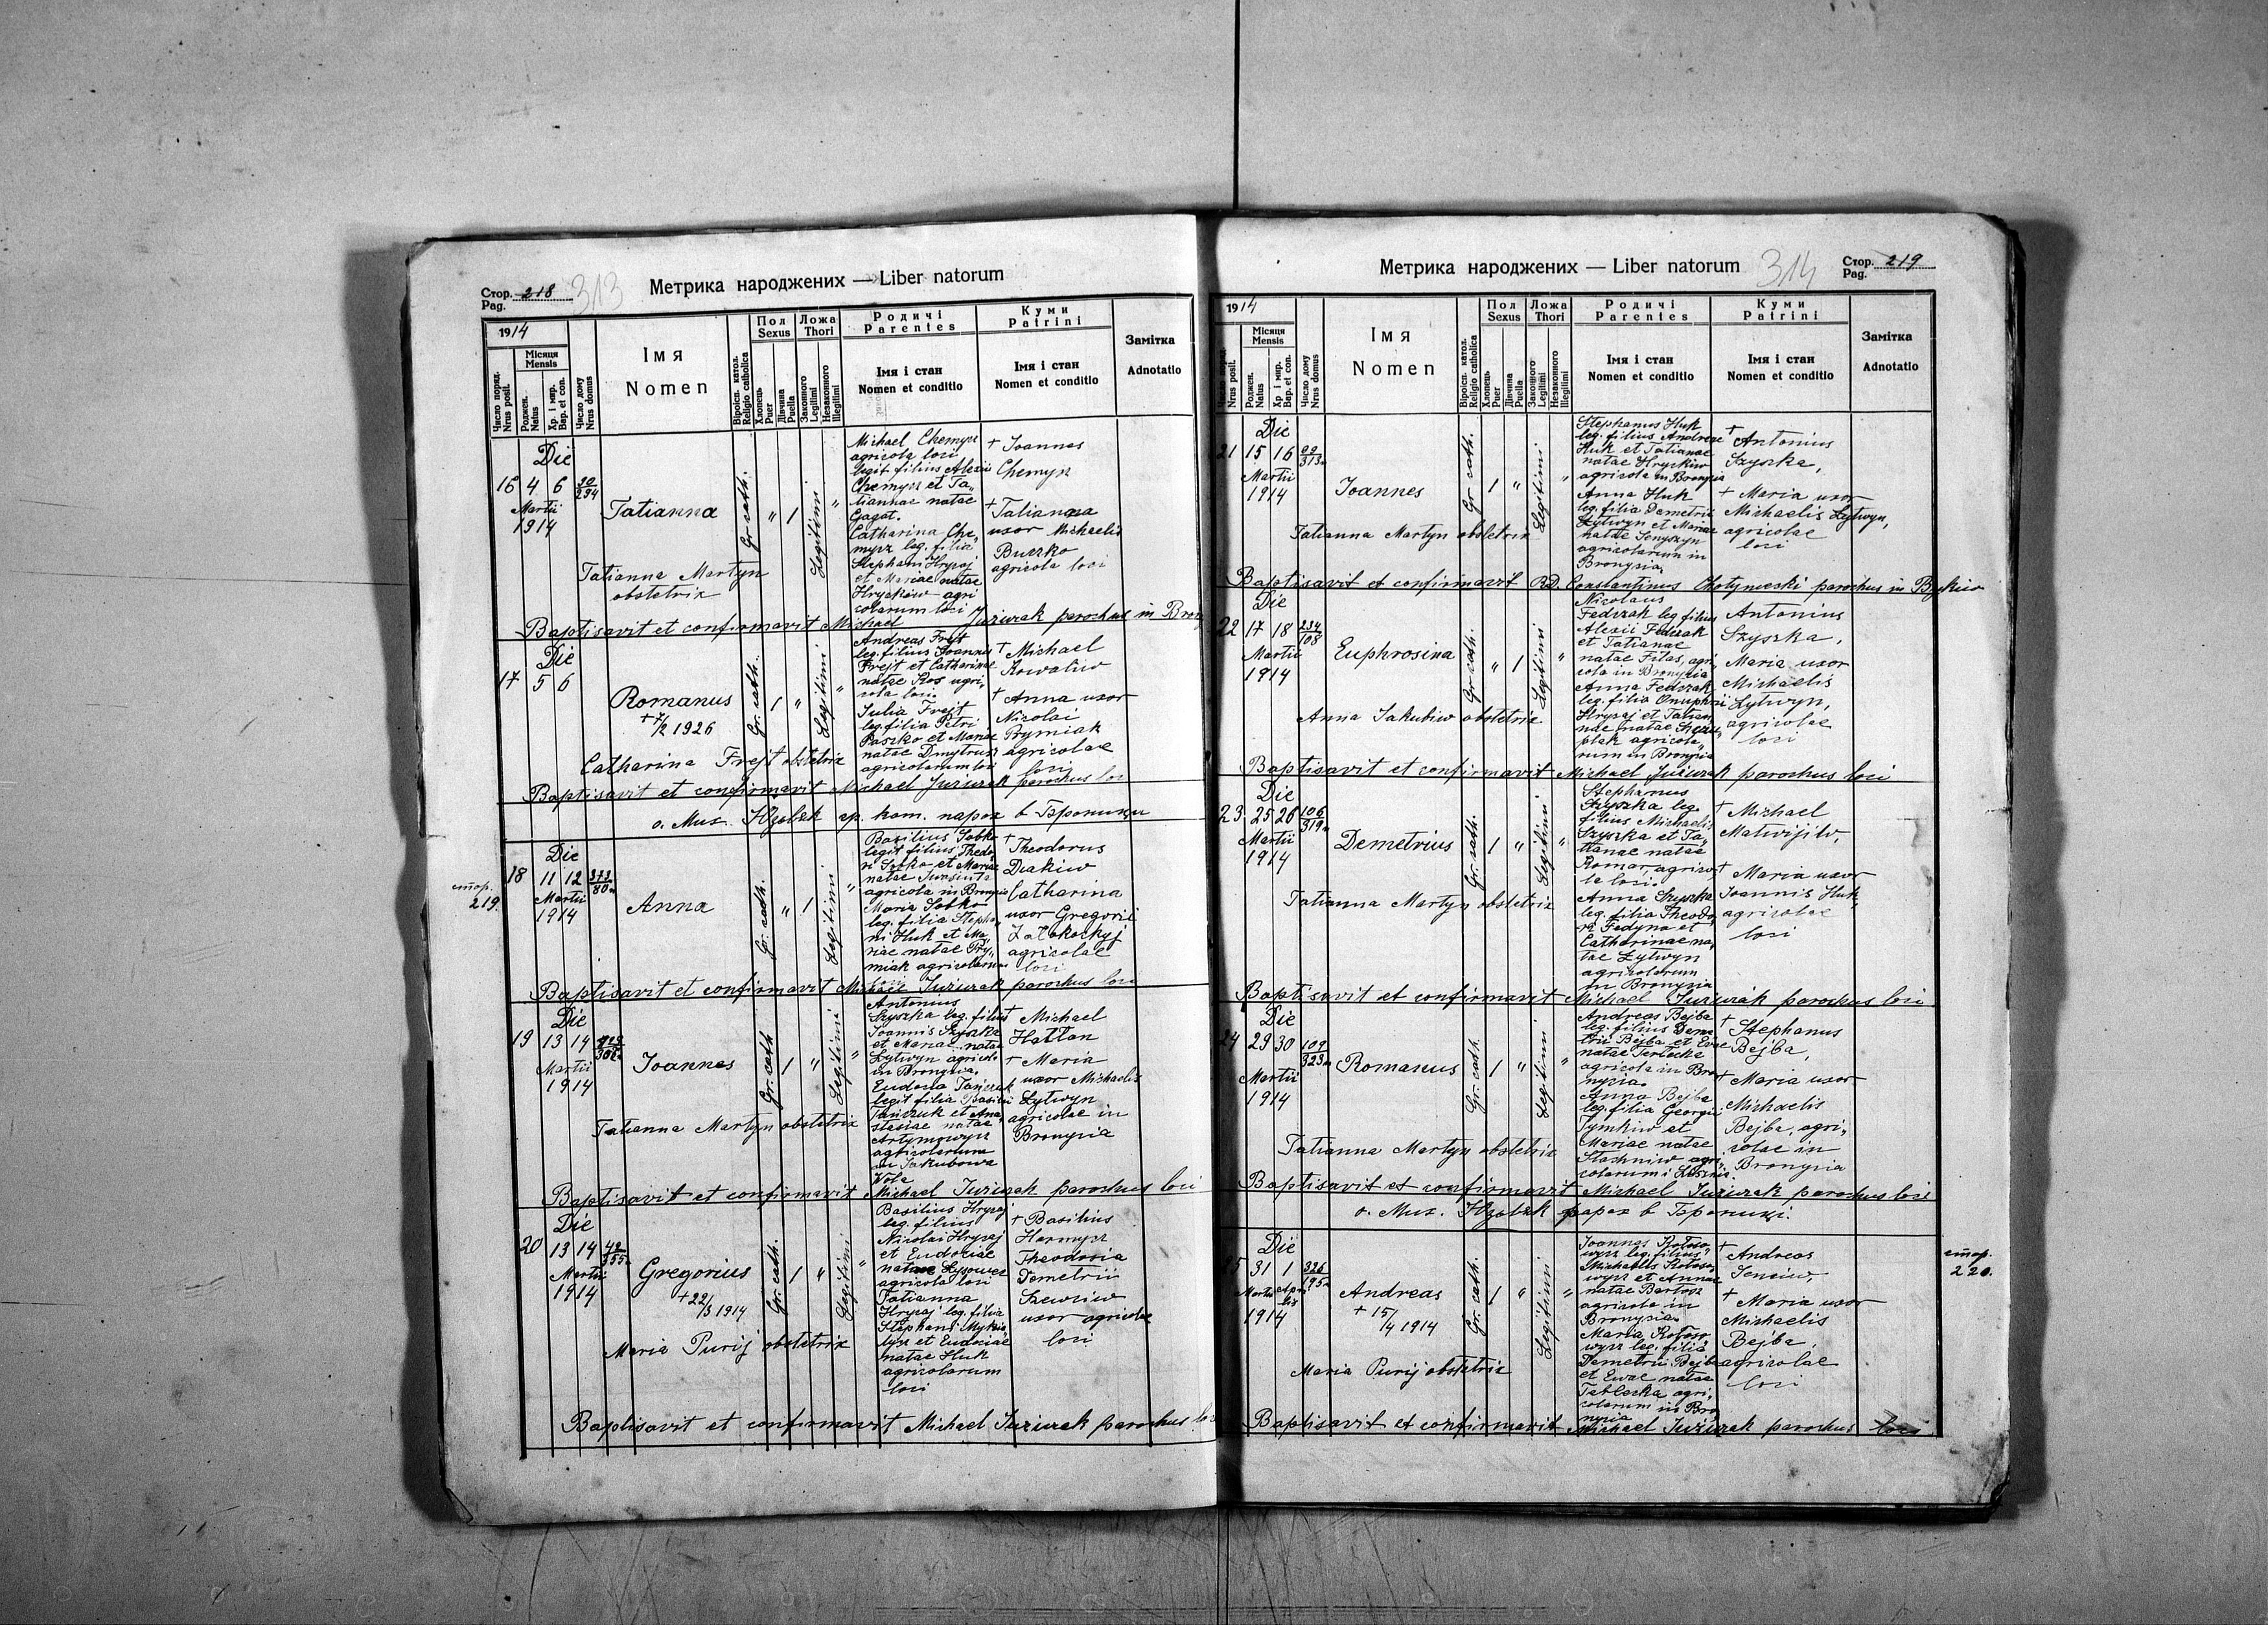 Стор. 218
Pag.
313
Метрика народжених — Liber natorum
1914
Місяця
Mensis
Число поряд.
Nrus posit.
Роджен.
Natus
Хр. і мир.
Bap. et con.
Число дому
Nrus domus
Імя
Nomen
Віроісп. катол.
Religio catholica
Пол
Sexus
Хлопець
Puer
Дівчина
Puella
Ложа
Thori
Законного
Legitimi
Незаконного
Illegitimi
Родичі
Parentes
Імя і стан
Nomen et conditio
Куми
Patrini
Імя і стан
Nomen et conditio
Замітка
Adnotatio
Die
16 4 6 294
Martii
1914
Tatianna
Gr cath.
" 1
Legitimi "
Michael Chemysz
agricola loci
legit filius Alexii
Chemysz et Ta„
tiannae natae
Gagat.
Catharina Che„
mysz leg. filia
Stephani Hrycaj
et Mariae natae
Hryckiw agri
colarum loci
+ Joannes
Chemysz
+ Tatianna
uxor Michaelis
Buczko
agricola loci
Tatianna Martyn
obstetrix
Baptisavit et confirmavit Michael Juzurak parochus in Bron
Die
17 5 6
Romanus
+ 7/2 1926
Gr. cath.
1 "
Legitimi "
Andreas Frejt
leg. filius Joannis
Frejt et Catharinae
natae Kos agri„
cola loci.
Julia Frejt
leg filia Petri
Paszko et Mariae
natae Dmytrusz
agricolarum loci
+ Michael
Kowaliw
+ Anna uxor
Nicolai
Prymiak
agricolae
loci
Catharina Frejt obstetrix
Baptisavit et confirmavit Michael Juzurak parochus loci
о. Мих. гр. кат. парох в Брониця
стор.
219.
Die
18 11 12 373/80
Martii
1914
Anna
Gr. cath.
" 1
Legitimi "
Basilius Sobko
legit filius Theodo
ri Sobko et Mariae
natae
agricola in Bronycia
Maria Sobko
leg. filia Stepha„
ni Huk et Ma„
riae natae Pry„
miak agricolarum
loci
+ Theodorus
Diakiw
Catharina
uxor Gregorii
Zalokockyj
agricolae
loci
Baptisavit et confirmavit Michael Juzurak parochus loci
Die
19 13 14
Martii
1914
Joannes
Gr. cath
1 "
Legitimi "
Antonius
Szyszka leg. filius
Joannis Szyszka
et Mariae natae
Lytwyn agricola
in Bronycia.
Eudoxia Tańczuk
legit filia Basilii
Tańczuk et Ana„
stasiae natae
Artymowycz
agricolarum
in Jakubowa
Wola
+ Michael
Hatlan
+ Maria
uxor Michaelis
Lytwyn
agricolae in
Bronycia
Tatianna Martyn obstetrix
Baptisavit et confirmavit Michael Juzurak parochus loci
Die
20 13 14 355
Martii
1914
Gregorius
+ 22/3 1914
Gr. cath.
1 "
Legitimi "
Basilius Hrycaj
leg. filius
Nicolai Hrycaj
et Eudoxiae
natae Lysowec
agricola loci
Tatianna
Hrycaj leg. filia
Stephani Myka
lycz et Eudoxiae
natae Huk
agricolarum
loci
+ Basilius
Harmysz
Theodosia
Demetrii
Szewciw
uxor agricolae
loci
Maria Puryj obstetrix
Baptisavit et confirmavit Michael Juzurak parochus loci
Метрика народжених — Liber natorum
314
Стор. 219
Pag.
1914
Місяця
Mensis
Nrus posit.
Роджен.
Natus
Хр. і мир.
Bap. et con.
Число дому
Nrus domus
Імя
Nomen
Віроісп. катол.
Religio catholica
Пол
Sexus
Хлопець
Puer
Дівчина
Puella
Ложа
Thori
Законного
Legitimi
Незаконного
Illegitimi
Родичі
Parentes
Імя і стан
Nomen et conditio
Куми
Patrini
Імя і стан
Nomen et conditio
Замітка
Adnotatio
Die
21 15 16
Martii
1914
Joannes
Gr cath.
1 "
Legitimi "
Stephanus Huk
leg. filius Andreae
Huk et Tatianae
natae Hryckiw
agricola in Bronycia
Anna Huk
leg. filia Demetrii
Lytwyn et Mariae
natae Senyszyn
agricolarum in
Bronycia.
+ Antonius
Szyszka,
+ Maria uxor
Michaelis Lytwyn,
agricolae
loci
Tatianna Martyn obstetrix
Baptisavit et confirmavit RD. Constantinus Chotynecki parochus in Bykiw
Die
22 17 18 234/108
Martii
1914
Euphrosina
Gr cath.
" 1
Legitimi "
Nicolaus
Fedczak leg filius
Alexii Fedczak
et Tatianae
natae Filas, agri„
cola in Bronycia
Anna Fedczak
leg. filia Onuphrii
Hrycaj et Tatian„
nae natae
agricola„
rum in Bronycia
Antonius
Szyszka,
Maria uxor
Michaelis
Lytwyn,
agricolae
loci
Anna Jakubiw obstetrix
Baptisavit et confirmavit Michael Juzurak parochus loci
Die
23 25 26 106/319
Martii
1914
Demetrius
Gr. cath.
1 "
Legitimi "
Stephanus
Szyszka leg.
filius Michaelis
Szyszka et Ta„
tianae natae
Romar, agrico„
la loci.
Anna Szyszka
leg. filia Theodo„
ri Fedyna et
Catharinae na„
tae Lytwyn
agricolarum
in Bronycia
+ Michael
Matwijiw,
+ Maria uxor
Joannis Huk,
agricolae
loci
Tatianna Martyn obstetrix
Baptisavit et confirmavit Michael Juzurak parochus loci
Die
24 29 30 109/323
Martii
1914
Romanus
Gr. cath.
1 "
Legitimi "
Andreas Bejba
leg. filius Deme
trii Bejba et Evae
natae Terlecka
agricola in Bro„
nycia.
Anna Bejba
leg. filia Georgii
Tymkiw et
Mariae natae
Stachniw agri„
colarum
+ Stephanus
Bejba,
+ Maria uxor
Michaelis
Bejba, agri„
colae in
Bronycia
Tatianna Martyn obstetrix
Baptisavit et confirmavit Michael Juzurak parochus loci
о. Мих. парох в Брониці.
Die
25 31 1 326/195
Martii Apri
lis
1914
Andreas
+ 15/4 1914
Gr. cath.
1 "
Legitimi "
Joannes Kotoso„
wycz leg. filius
Michaelis Kotoso„
wycz et Annae
natae Bartosz
agricola in
Bronycia.
Maria Kotoso„
wycz leg. filia
Demetrii Bejba
et Evae natae
Terlecka agri„
colarum in Bro„
nycia
+ Andreas
Senciw,
+ Maria uxor
Michaelis
Bejba,
agricolae
loci
стор.
220.
Maria Puryj obstetrix
Baptisavit et confirmavit Michael Juzurak parochus loci